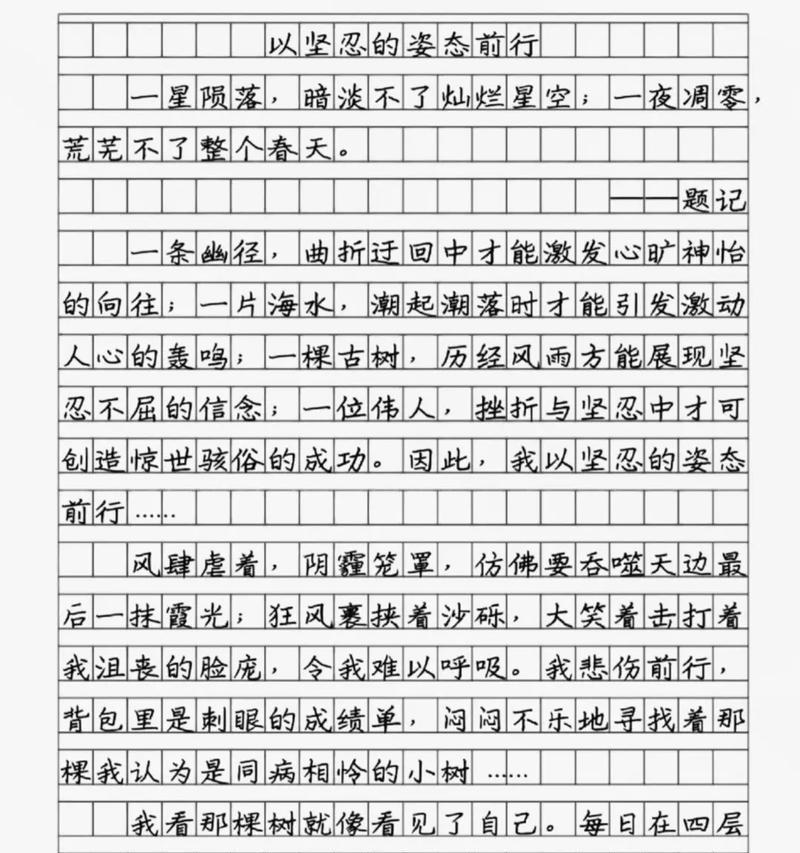 以坚忍的姿态前行
一星陨落，暗淡不了灿烂星空；一夜凋零，
荒芜不了整个春天。
——题记
一条幽径，曲折迂回中才能激发心旷神怡
的向往；一片海水，潮起潮落时才能引发激动
人心的轰鸣；一棵古树，历经风雨方能展现坚
忍不屈的信念；一位伟人，挫折与坚忍中才可
创造惊世骇俗的成功。因此，我以坚忍的姿态
前行……
风肆虐着，阴霾笼罩，仿佛要吞噬天边最
后一抹霞光；狂风裹挟着沙砾，大笑着击打着
我沮丧的脸庞，令我难以呼吸。我悲伤前行，
背包里是刺眼的成绩单，闷闷不乐地寻找着那
棵我认为是同病相怜的小树……
我看那棵树就像看见了自己。每日在四层